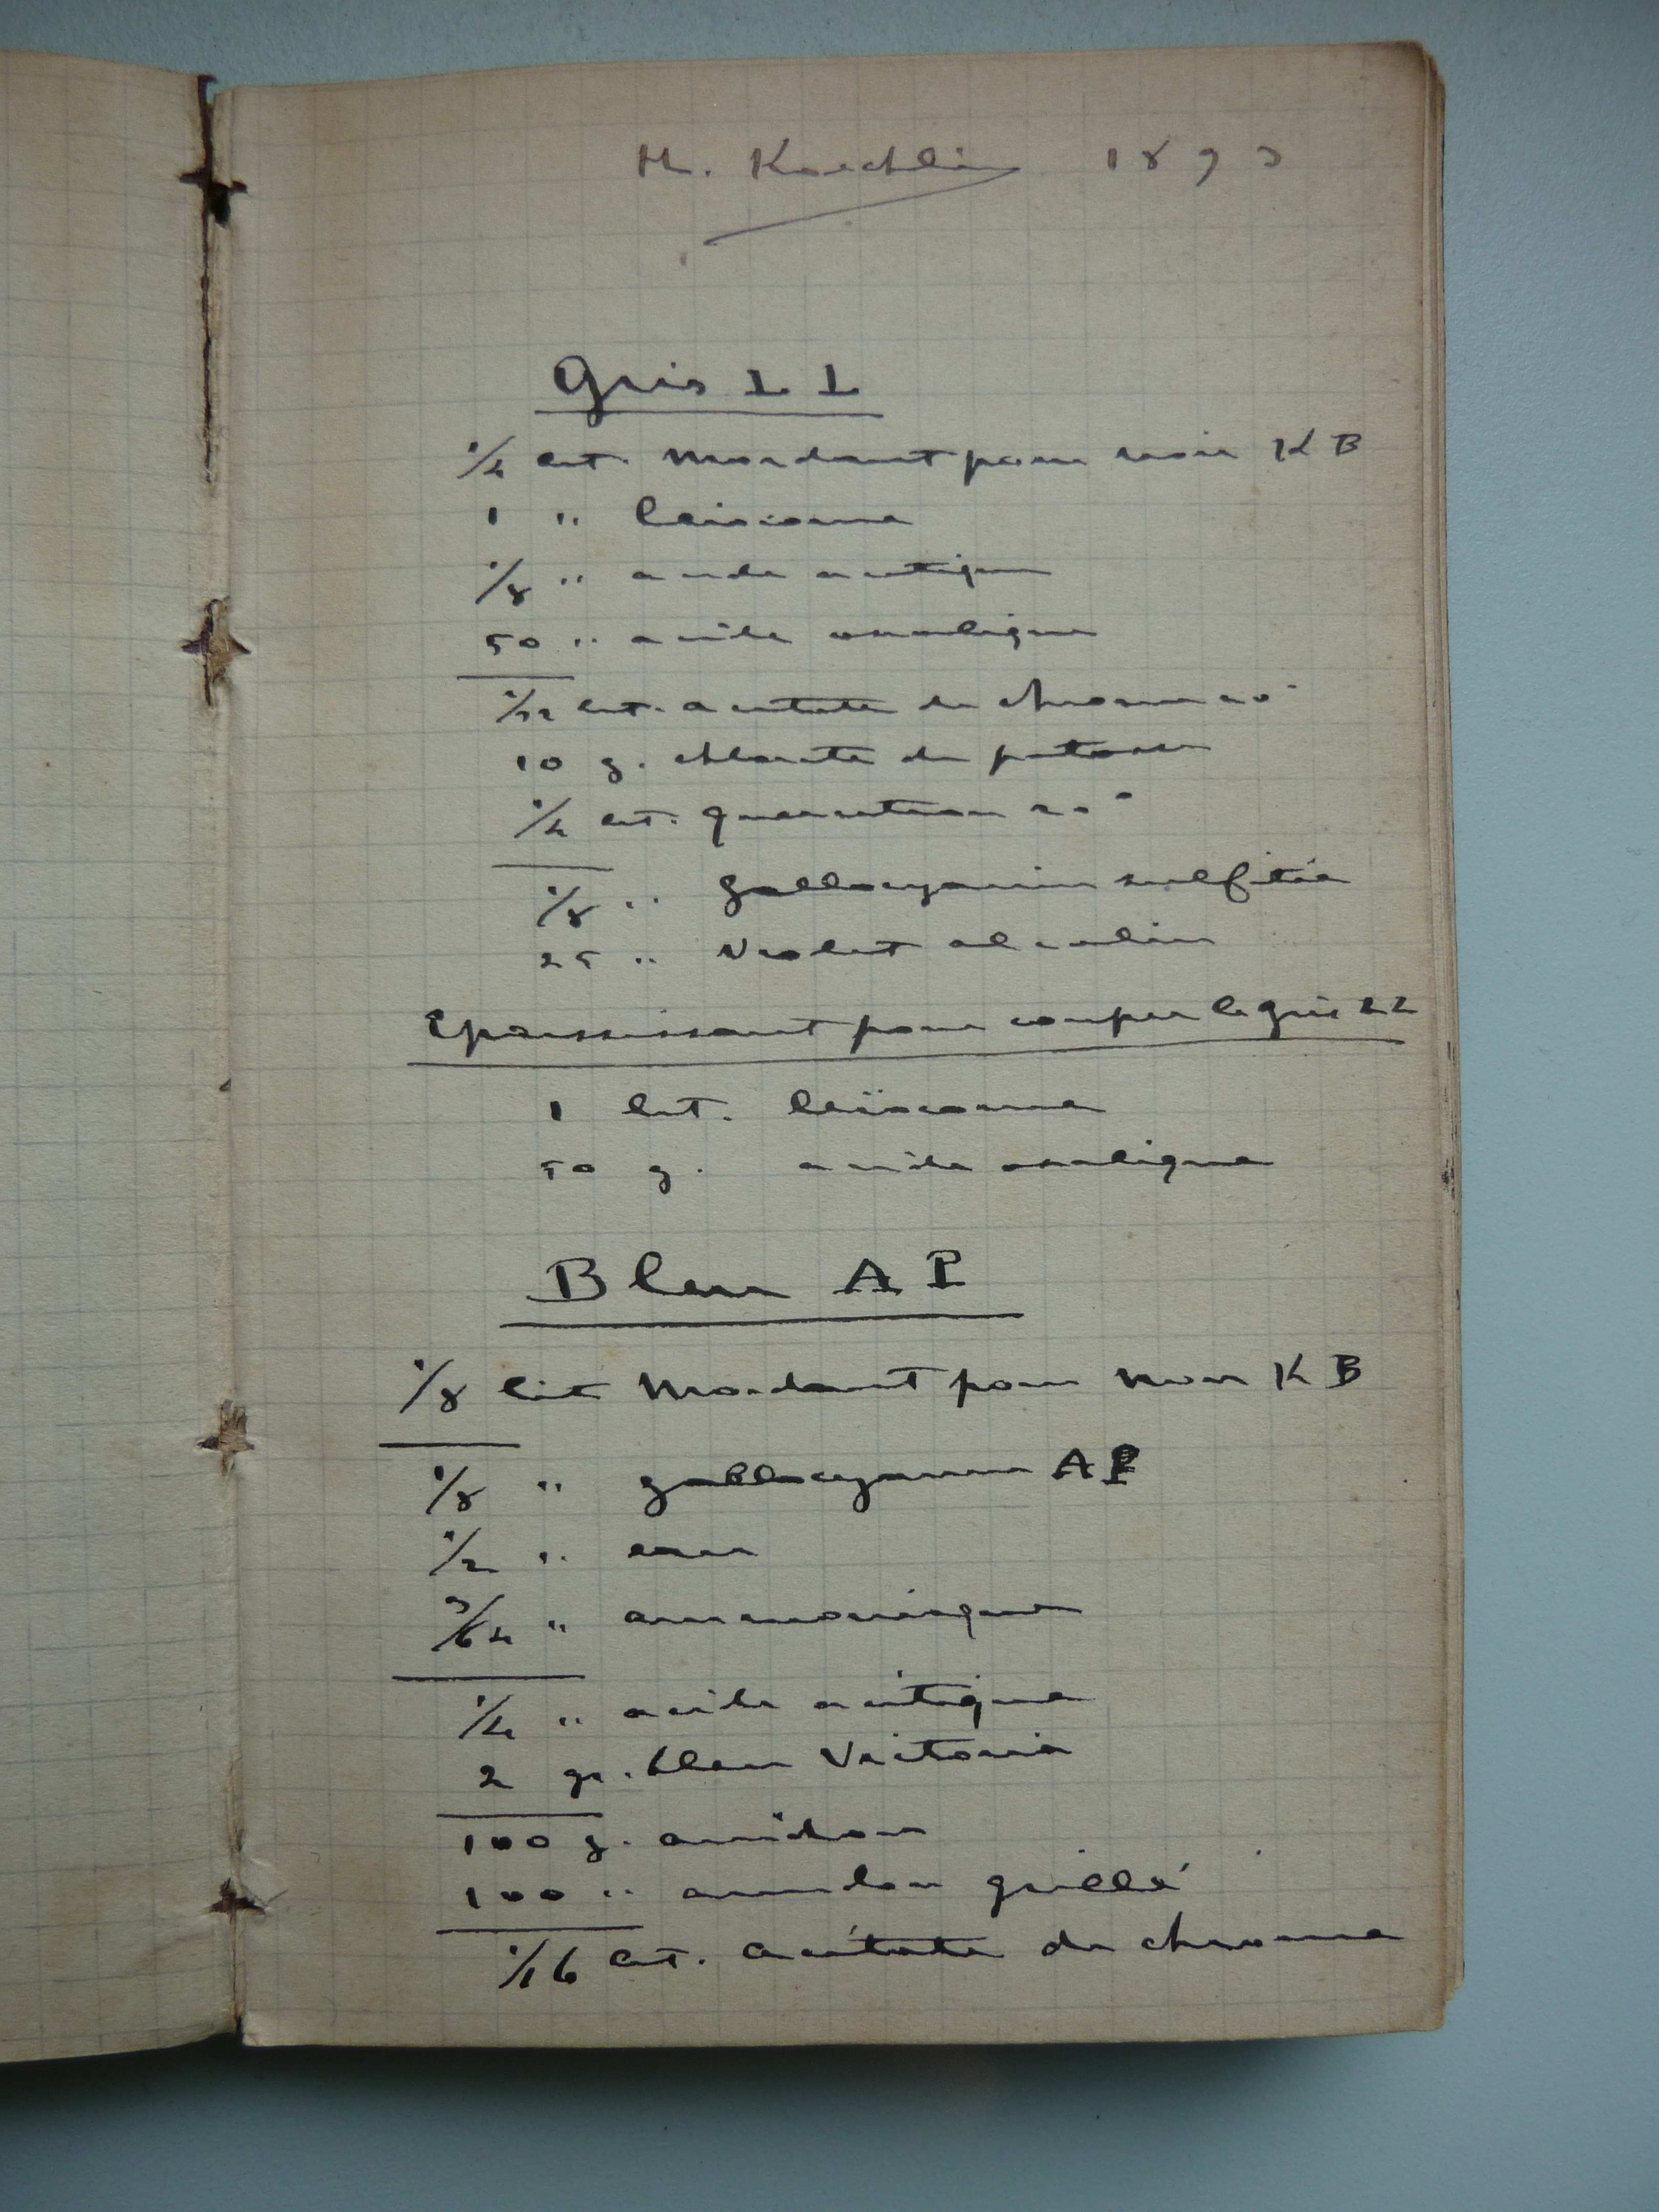 H. Koechlin 1893
Gris LL
1/4 lit. Mordant pour noir KB
1 " leiocome
1/8 " acide acetique
50 " acide oxalique
1/32 lit. acetate de chrome 20°
10 g. chlorate de potasse
1/4 lit. quercitron 20°
1/8 " gallocyanine sulfitée
25 " Violet alcalin
Epaississant pour couper le gris LL
1 lit. leïocome
50 g. acide oxalique
Bleu AP
1/8 lit Mordant pour noir KB
1/8 " gallocyanine AP
1/2 " eau
3/64 " ammoniaque
1/4 " acide acétique
2 gr. bleu Victoria
100 g. amidon
100 " amidon grillé
1/16 lit. acétate de chrome